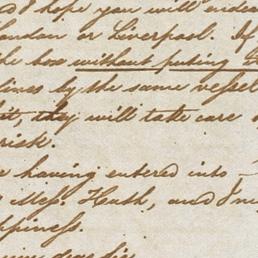 I hope you will
London or Liverpool. If
the box without puting
lines by the same vessel
it, they will take care
risk.
having entered into -
Mess. Heath, and I
ppiness.
my dear sir